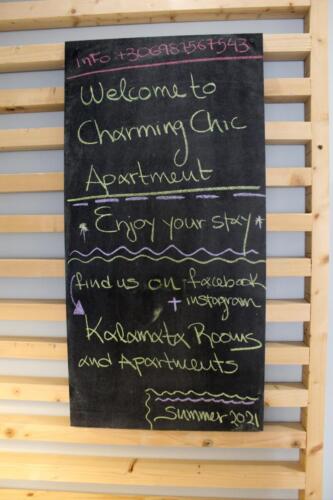 Info +306987567543
Welcome to
Charming Chic
Apartment
* Enjoy your stay *
find us on facebook
+ instagram
Kalamata Rooms
and Apartments
Summer 2021